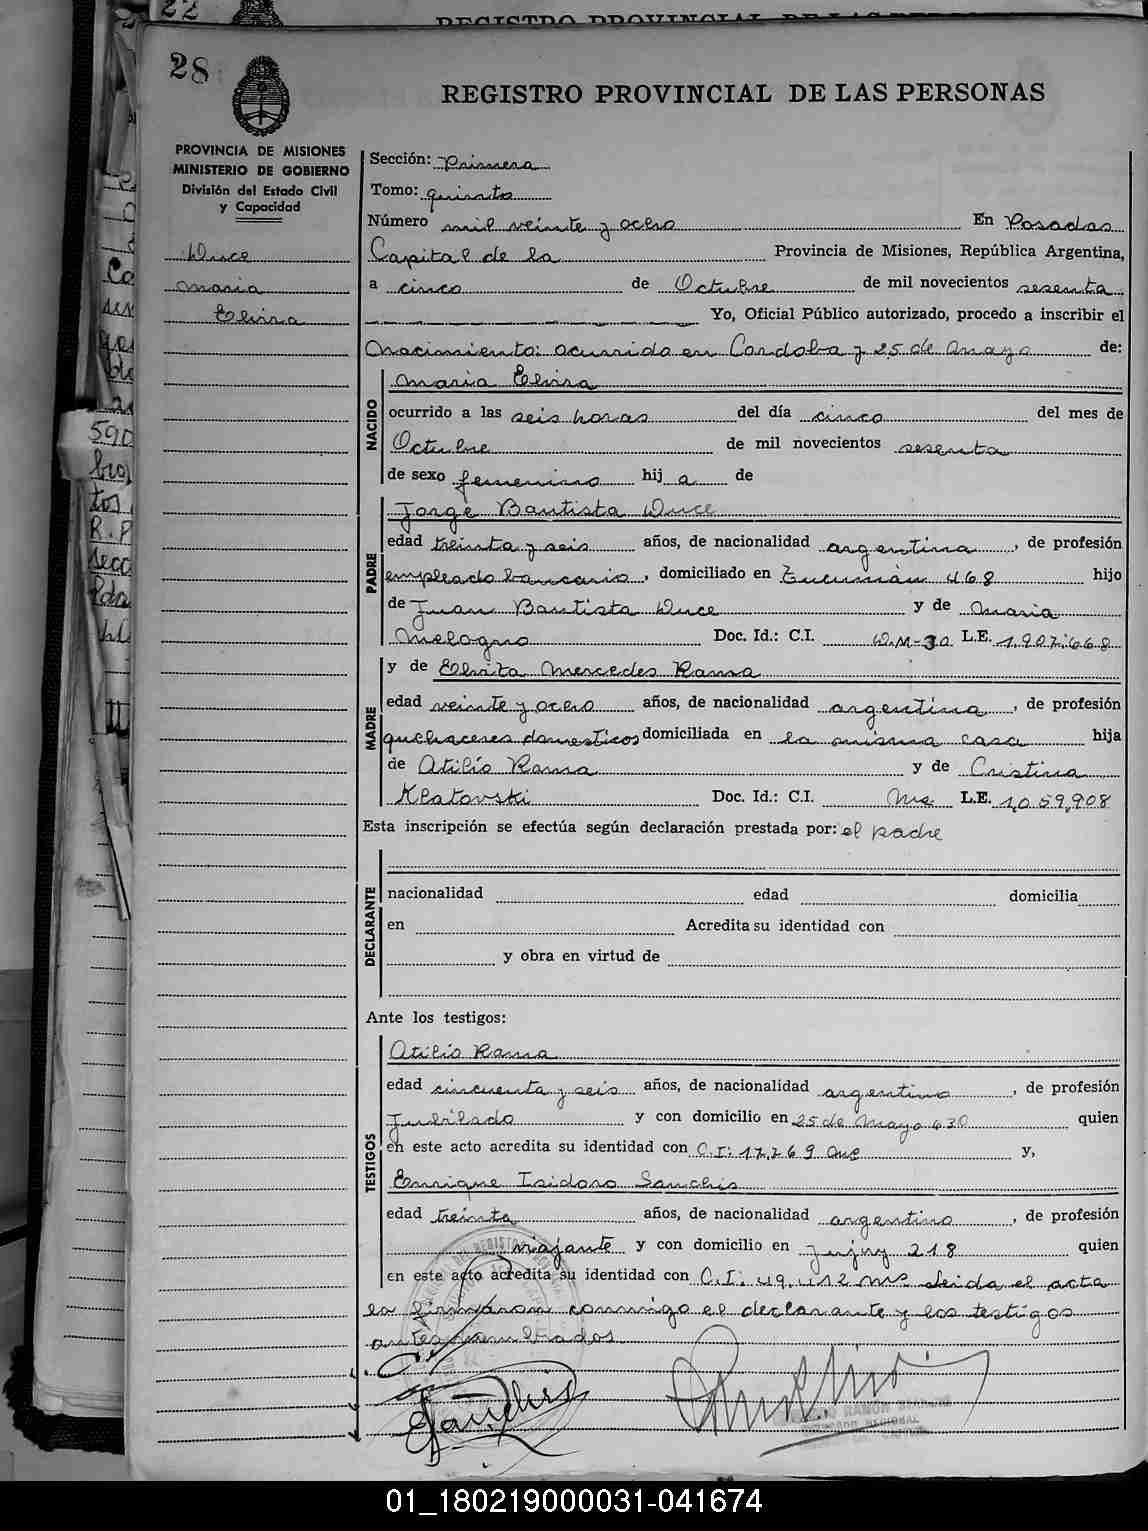 22
REGISTRO PROVINCIAL DE LAS PERSONAS
28
REGISTRO PROVINCIAL DE LAS PERSONAS
PROVINCIA DE MISIONES
MINISTERIO DE GOBIERNO
División del Estado Civil
y Capacidad
Duce
Maria
Elvira
Sección: Primera
Tomo: quinto
Número mil veinte y ocho En Posadas
Capital de la Provincia de Misiones, República Argentina,
a cinco de Octubre de mil novecientos sesenta
Yo, Oficial Público autorizado, procedo a inscribir el
Nacimiento: ocurrido en Cordoba y 25 de Mayo de:
NACIDO
Maria Elvira
ocurrido a las seis horas del día cinco del mes de
Octubre de mil novecientos sesenta
de sexo femenino hij a de
PADRE
Jorge Bautista Duce
edad treinta y seis años, de nacionalidad argentina, de profesión
empleado bancario, domiciliado en Tucumán 468 hijo
de Juan Bautista Duce y de Maria
Melogno Doc. Id.: C.I. D.M-30 L.E. 1.907.668
MADRE
y de Elvita Mercedes Rama
edad veinte y ocho años, de nacionalidad argentina, de profesión
quehaceres domesticos domiciliada en la misma casa hija
de Atilio Rama y de Cristina
Klatovski Doc. Id.: C.I. Ms. L.E. 1,059,908
Esta inscripción se efectúa según declaración prestada por: el padre
DECLARANTE
nacionalidad edad domicilia
en Acredita su identidad con
y obra en virtud de
Ante los testigos:
TESTIGOS
Atilio Rama
edad cincuenta y seis años, de nacionalidad argentino, de profesión
Jubilado y con domicilio en 25 de Mayo 630 quien
en este acto acredita su identidad con C.I: 17.769 y,
Enrique Isidoro Sanchis
edad treinta años, de nacionalidad argentino, de profesión
viajante y con domicilio en Jujuy 218 quien
en este acto acredita su identidad con C.I. 49.412 Ms. Leida el acta
la firmaron conmigo el declarante y los testigos
antes nombrados
Sanchis
01_180219000031-041674